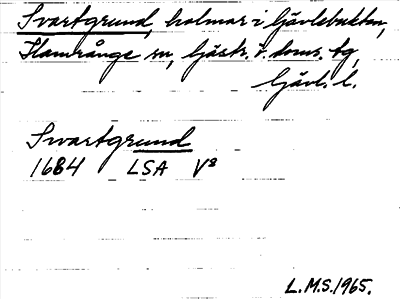 Svartgrund, holmar i Gävlebukten,
Hamrånge sn, Gästr. ö. doms. tg,
Gävl. l.
Svartgrund
1684 LSA V8
L.M.S. 1965.